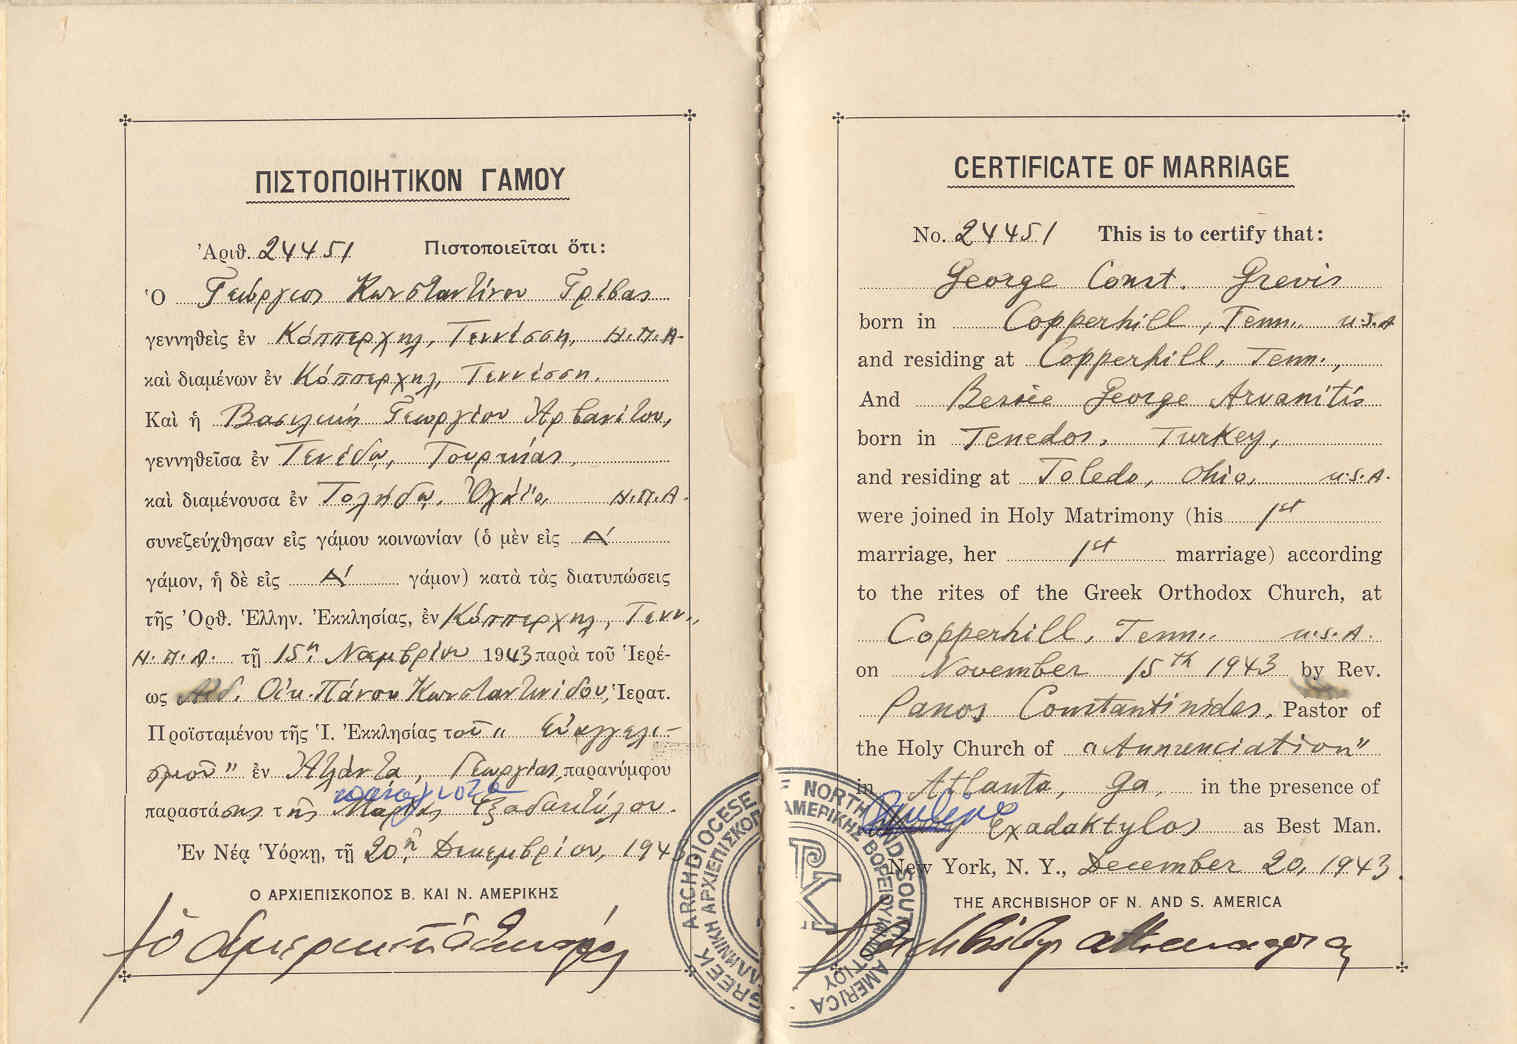 ΠΙΣΤΟΠΟΙΗΤΙΚΟΝ ΓΑΜΟΥ
Ἀριθ. 24451 Πιστοποιεῖται ὅτι:
Ὁ Γεώργιος Κωνσταντίνου Γρέβας
γεννηθεὶς ἐν Κόππερχηλ, Τεννέσση, Η.Π.Α.
καὶ διαμένων ἐν Κόππερχηλ, Τεννέσση.
Καὶ ἡ Βασιλική Γεωργίου Ἀρβανίτου,
γεννηθεῖσα ἐν Τενέδῳ, Τουρκίας,
καὶ διαμένουσα ἐν Τολήδῳ, Ὀχάϊο, Η.Π.Α.
συνεζεύχθησαν εἰς γάμου κοινωνίαν (ὁ μὲν εἰς Α΄
γάμον, ἡ δὲ εἰς Α΄ γάμον) κατὰ τὰς διατυπώσεις
τῆς Ὀρθ. Ἑλλην. Ἐκκλησίας, ἐν Κόππερχηλ, Τενν.,
Η.Π.Α. τῇ 15η. Νοεμβρίου 1943 παρὰ τοῦ Ἱερέ-
ως Οἰκ. Πάνου Κωνσταντινίδου, Ἱερατ.
Προϊσταμένου τῆς Ἱ. Ἐκκλησίας τοῦ "Εὐαγγελι-
σμοῦ" ἐν Ἀτλάντα, Γεωργίας, παρανύμφου
παραστάσης τῆς Ἐξαδακτύλου.
Ἐν Νέᾳ Ὑόρκῃ, τῇ 20ῇ. Δεκεμβρίου, 1943
Ο ΑΡΧΙΕΠΙΣΚΟΠΟΣ Β. ΚΑΙ Ν. ΑΜΕΡΙΚΗΣ
ὁ Ἀμερικῆς Ἀθηναγόρας
CERTIFICATE OF MARRIAGE
No. 24451 This is to certify that:
George Const. Grevis
born in Copperhill, Tenn. U.S.A
and residing at Copperhill, Tenn.,
And Bessie George Arvanitis
born in Tenedos, Turkey,
and residing at Toledo, Ohio, U.S.A.
were joined in Holy Matrimony (his 1st
marriage, her 1st marriage) according
to the rites of the Greek Orthodox Church, at
Copperhill, Tenn. U.S.A.
on November 15th 1943 by Rev.
Panos Constantinides, Pastor of
the Holy Church of "Annunciation"
in Atlanta, Ga, in the presence of
Exadaktylos as Best Man.
New York, N. Y., December 20, 1943.
THE ARCHBISHOP OF N. AND S. AMERICA
Archbishop Athenagoras
GREEK ARCHDIOCESE OF NORTH AND SOUTH AMERICA
ΕΛΛΗΝΙΚΗ ΑΡΧΙΕΠΙΣΚΟΠΗ ΑΜΕΡΙΚΗΣ ΒΟΡΕΙΟΥ ΚΑΙ ΝΟΤΙΟΥ